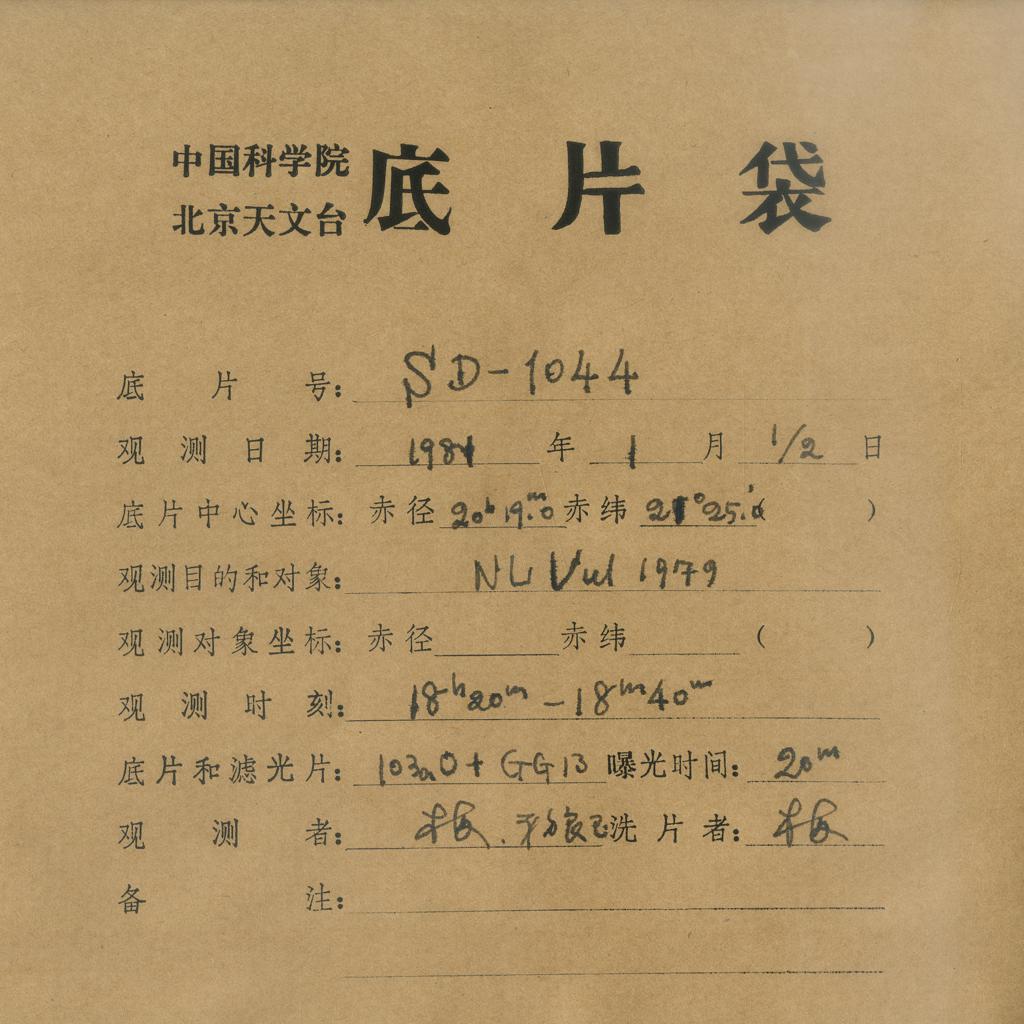 中国科学院
北京天文台
底片袋
底片号: SD-1044
观测日期: 1981 年 1 月 1/2 日
底片中心坐标: 赤径 20h19m.0 赤纬 21°25'. ( )
观测目的和对象: NU Vul 1979
观测对象坐标: 赤径 赤纬 ( )
观测时刻: 18h20m - 18m40m
底片和滤光片: 103aO+GG13 曝光时间: 20m
观测者: 洗片者:
备注: